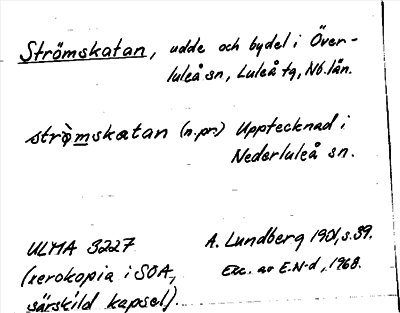 Strömskatan, udde och bydel i Över-
luleå sn, Luleå tg, Nb. län.
strò̀mskatan (n.pr.) Upptecknad i
Nederluleå sn.
ULMA 3227
(xerokopia i SOA,
särskild kapsel).
A. Lundberg 1901, s. 39.
Exc. av E.N-d, 1968.